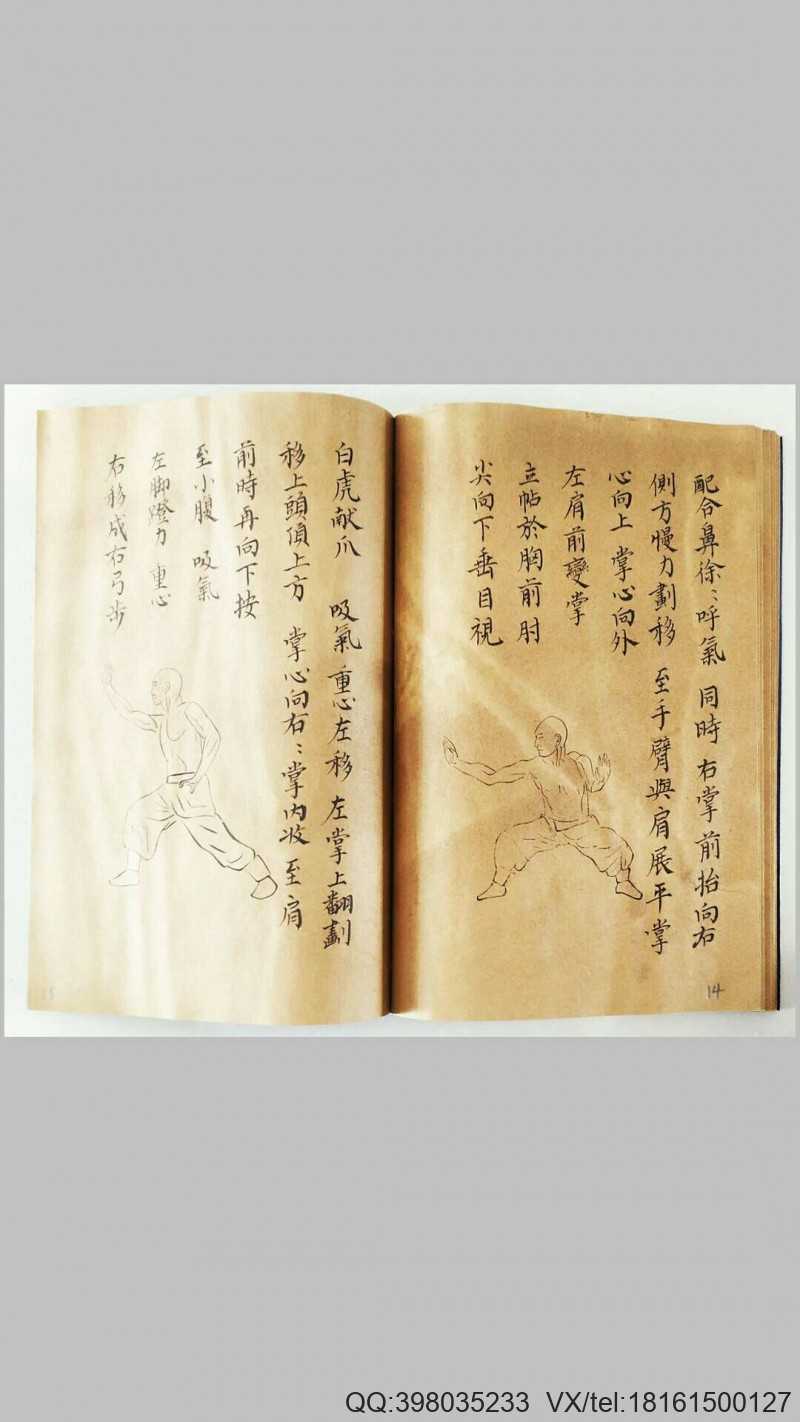 配合鼻徐〻呼氣 同時 右掌前抬向右
側方慢力劃移 至手臂與肩展平 掌
心向上 掌心向外
左肩前變掌
立帖於胸前肘
尖向下垂目視
14
白虎献爪 吸氣 重心左移 左掌上翻劃
移上頭頂上方 掌心向右〻掌内收至肩
前時再向下按
至小腹 吸氣
左脚蹬力 重心
右移成右弓步
15
QQ:398035233 VX/tel:18161500127